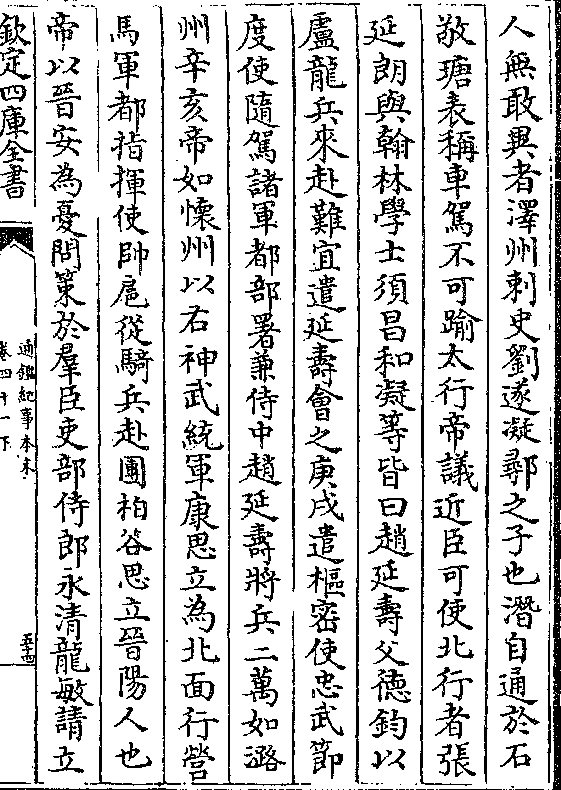 人無敢異者澤州刺史劉遂凝鄩之子也潛自通於石
敬瑭表稱車駕不可踰太行帝議近臣可使北行者張
延朗與翰林學士須昌和凝等皆曰趙延壽父德鈞以
盧龍兵來赴難宜遣延壽會之庚戌遣樞密使忠武節
度使隨駕諸軍都部署兼侍中趙延壽將兵二萬如潞
州辛亥帝如懷州以右神武統軍康思立為北面行營
馬軍都指揮使帥扈從騎兵赴團柏谷思立晉陽人也
帝以晉安為憂問策於羣臣吏部侍郎永清龍敏請立
欽定四庫全書
通鑑紀事本末
卷四十一下
五十四